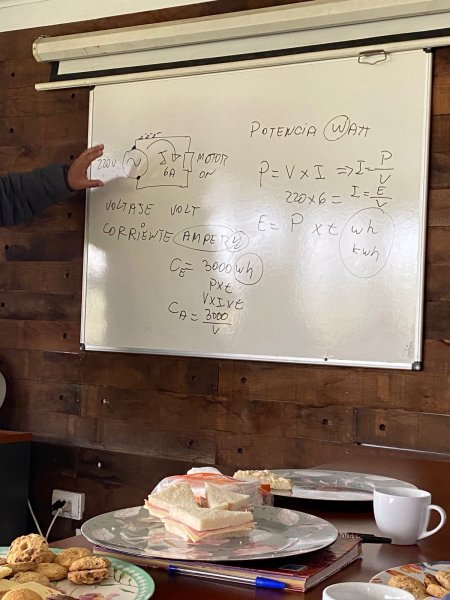 220V
I
6A
MOTOR
ON
VOLTAJE VOLT
CORRIENTE AMPER
CE = 3000 wh
Pxt
VxIxt
CA = 3000
V
POTENCIA WATT
P = V x I => I = P
V
220 x 6 = I = E
V
E = P x t wh
kwh